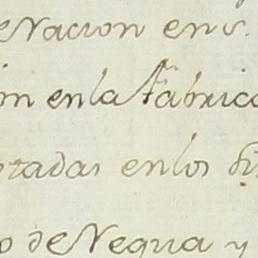 de Nacion en
en la Fabrica
tadas en los
de Negua y